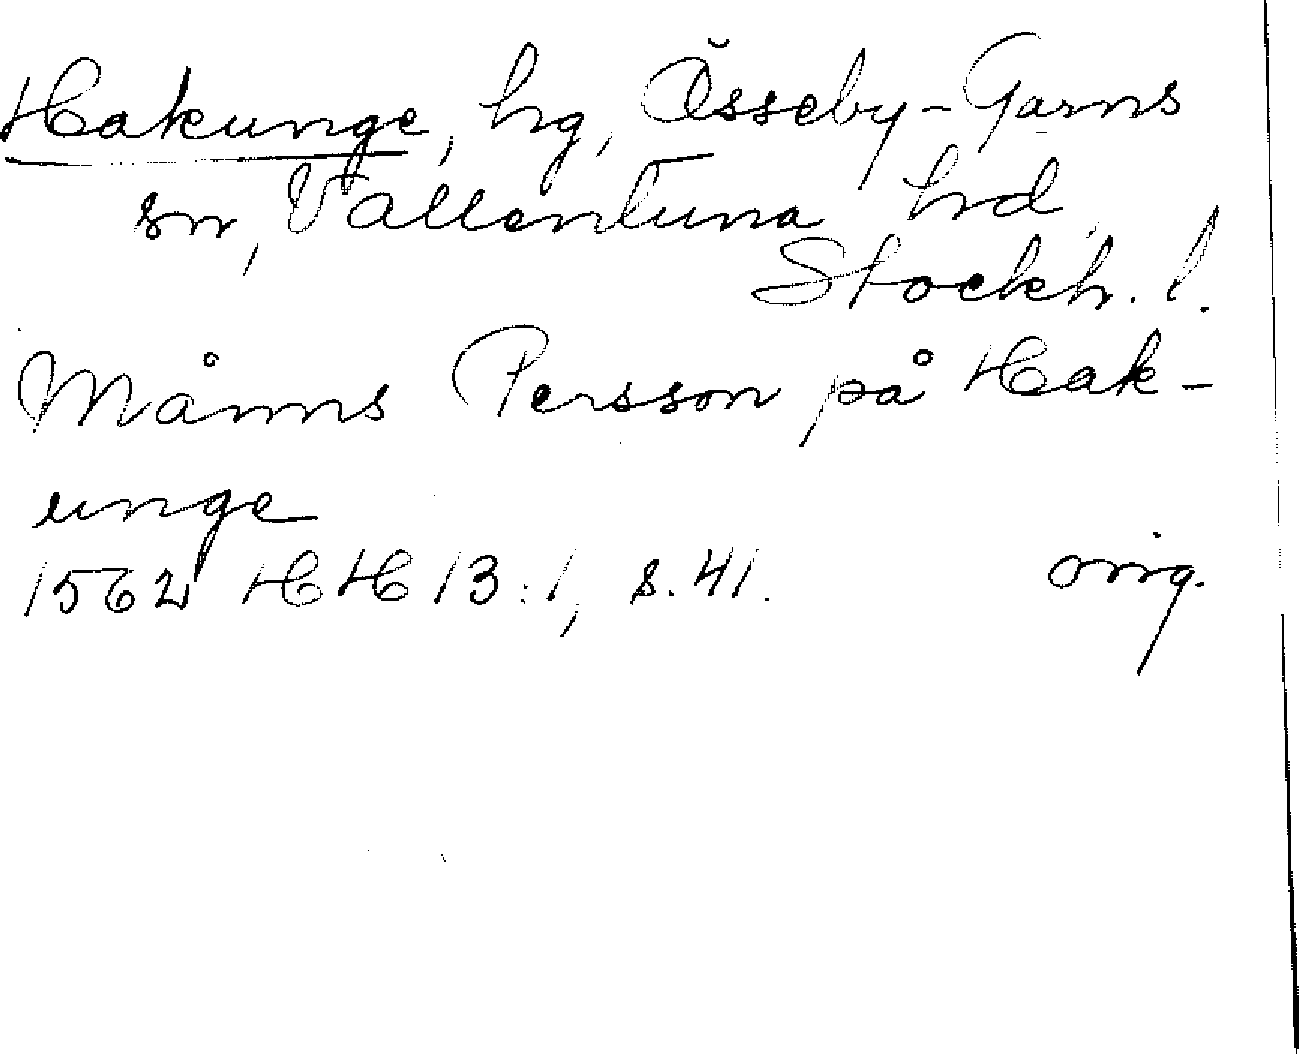 Hakunge, hg, Össeby-Garns
sn, Vallentuna hrd,
Stockh. l.
Måns Persson på Hak-
unge
1562 HH 13:1, s. 41. orig.